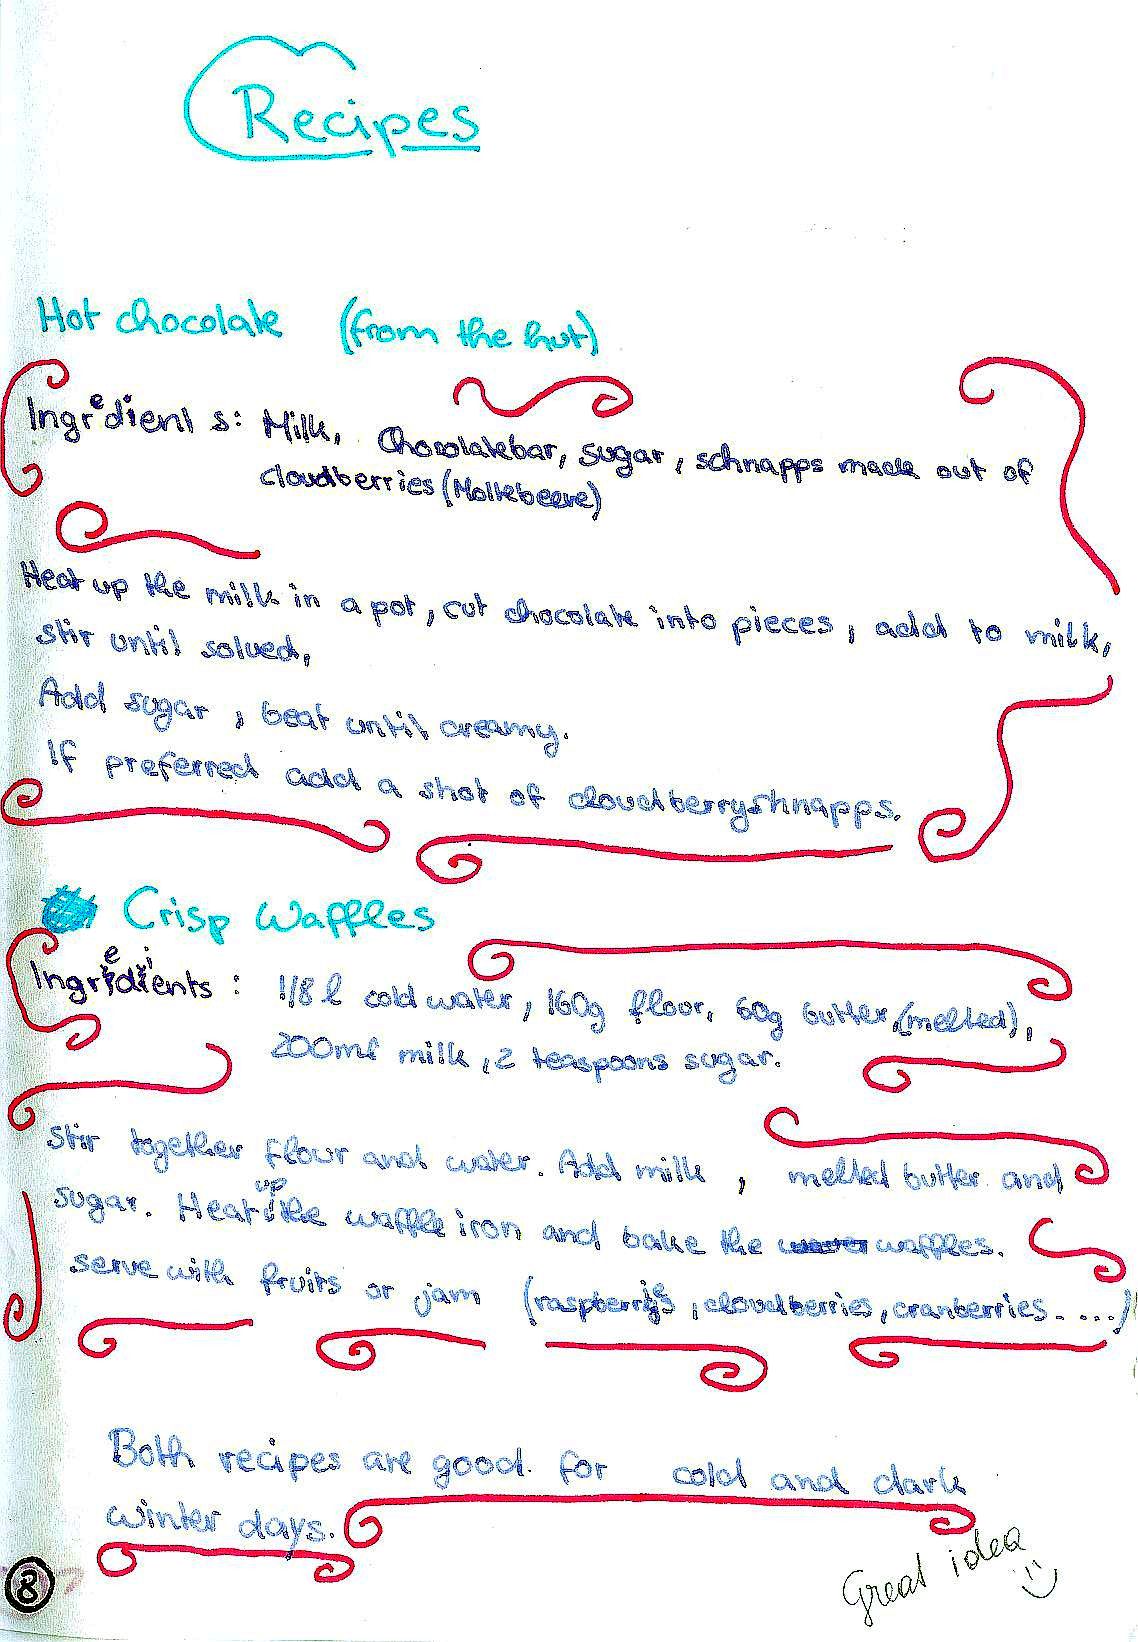 Recipes
Hot chocolate (from the hut)
Ingredients: Milk, Chocolatebar, sugar, schnapps made out of
cloudberries (Moltebeere)
Heat up the milk in a pot, cut chocolate into pieces, add to milk,
stir until solved,
Add sugar, beat until creamy.
If preferred add a shot of cloudberryshnapps.
Crisp Waffles
Ingredients: 1/8 l cold water, 160g floor, 60g butter,(melted),
200ml milk, 2 teaspoons sugar.
Stir together flour and water. Add milk, melted butter and
sugar. Heat up the waffle iron and bake the waffles.
serve with fruits or jam (raspberries, cloudberries, cranberries.....)
Both recipes are good for cold and dark
winter days.
Great idea
8